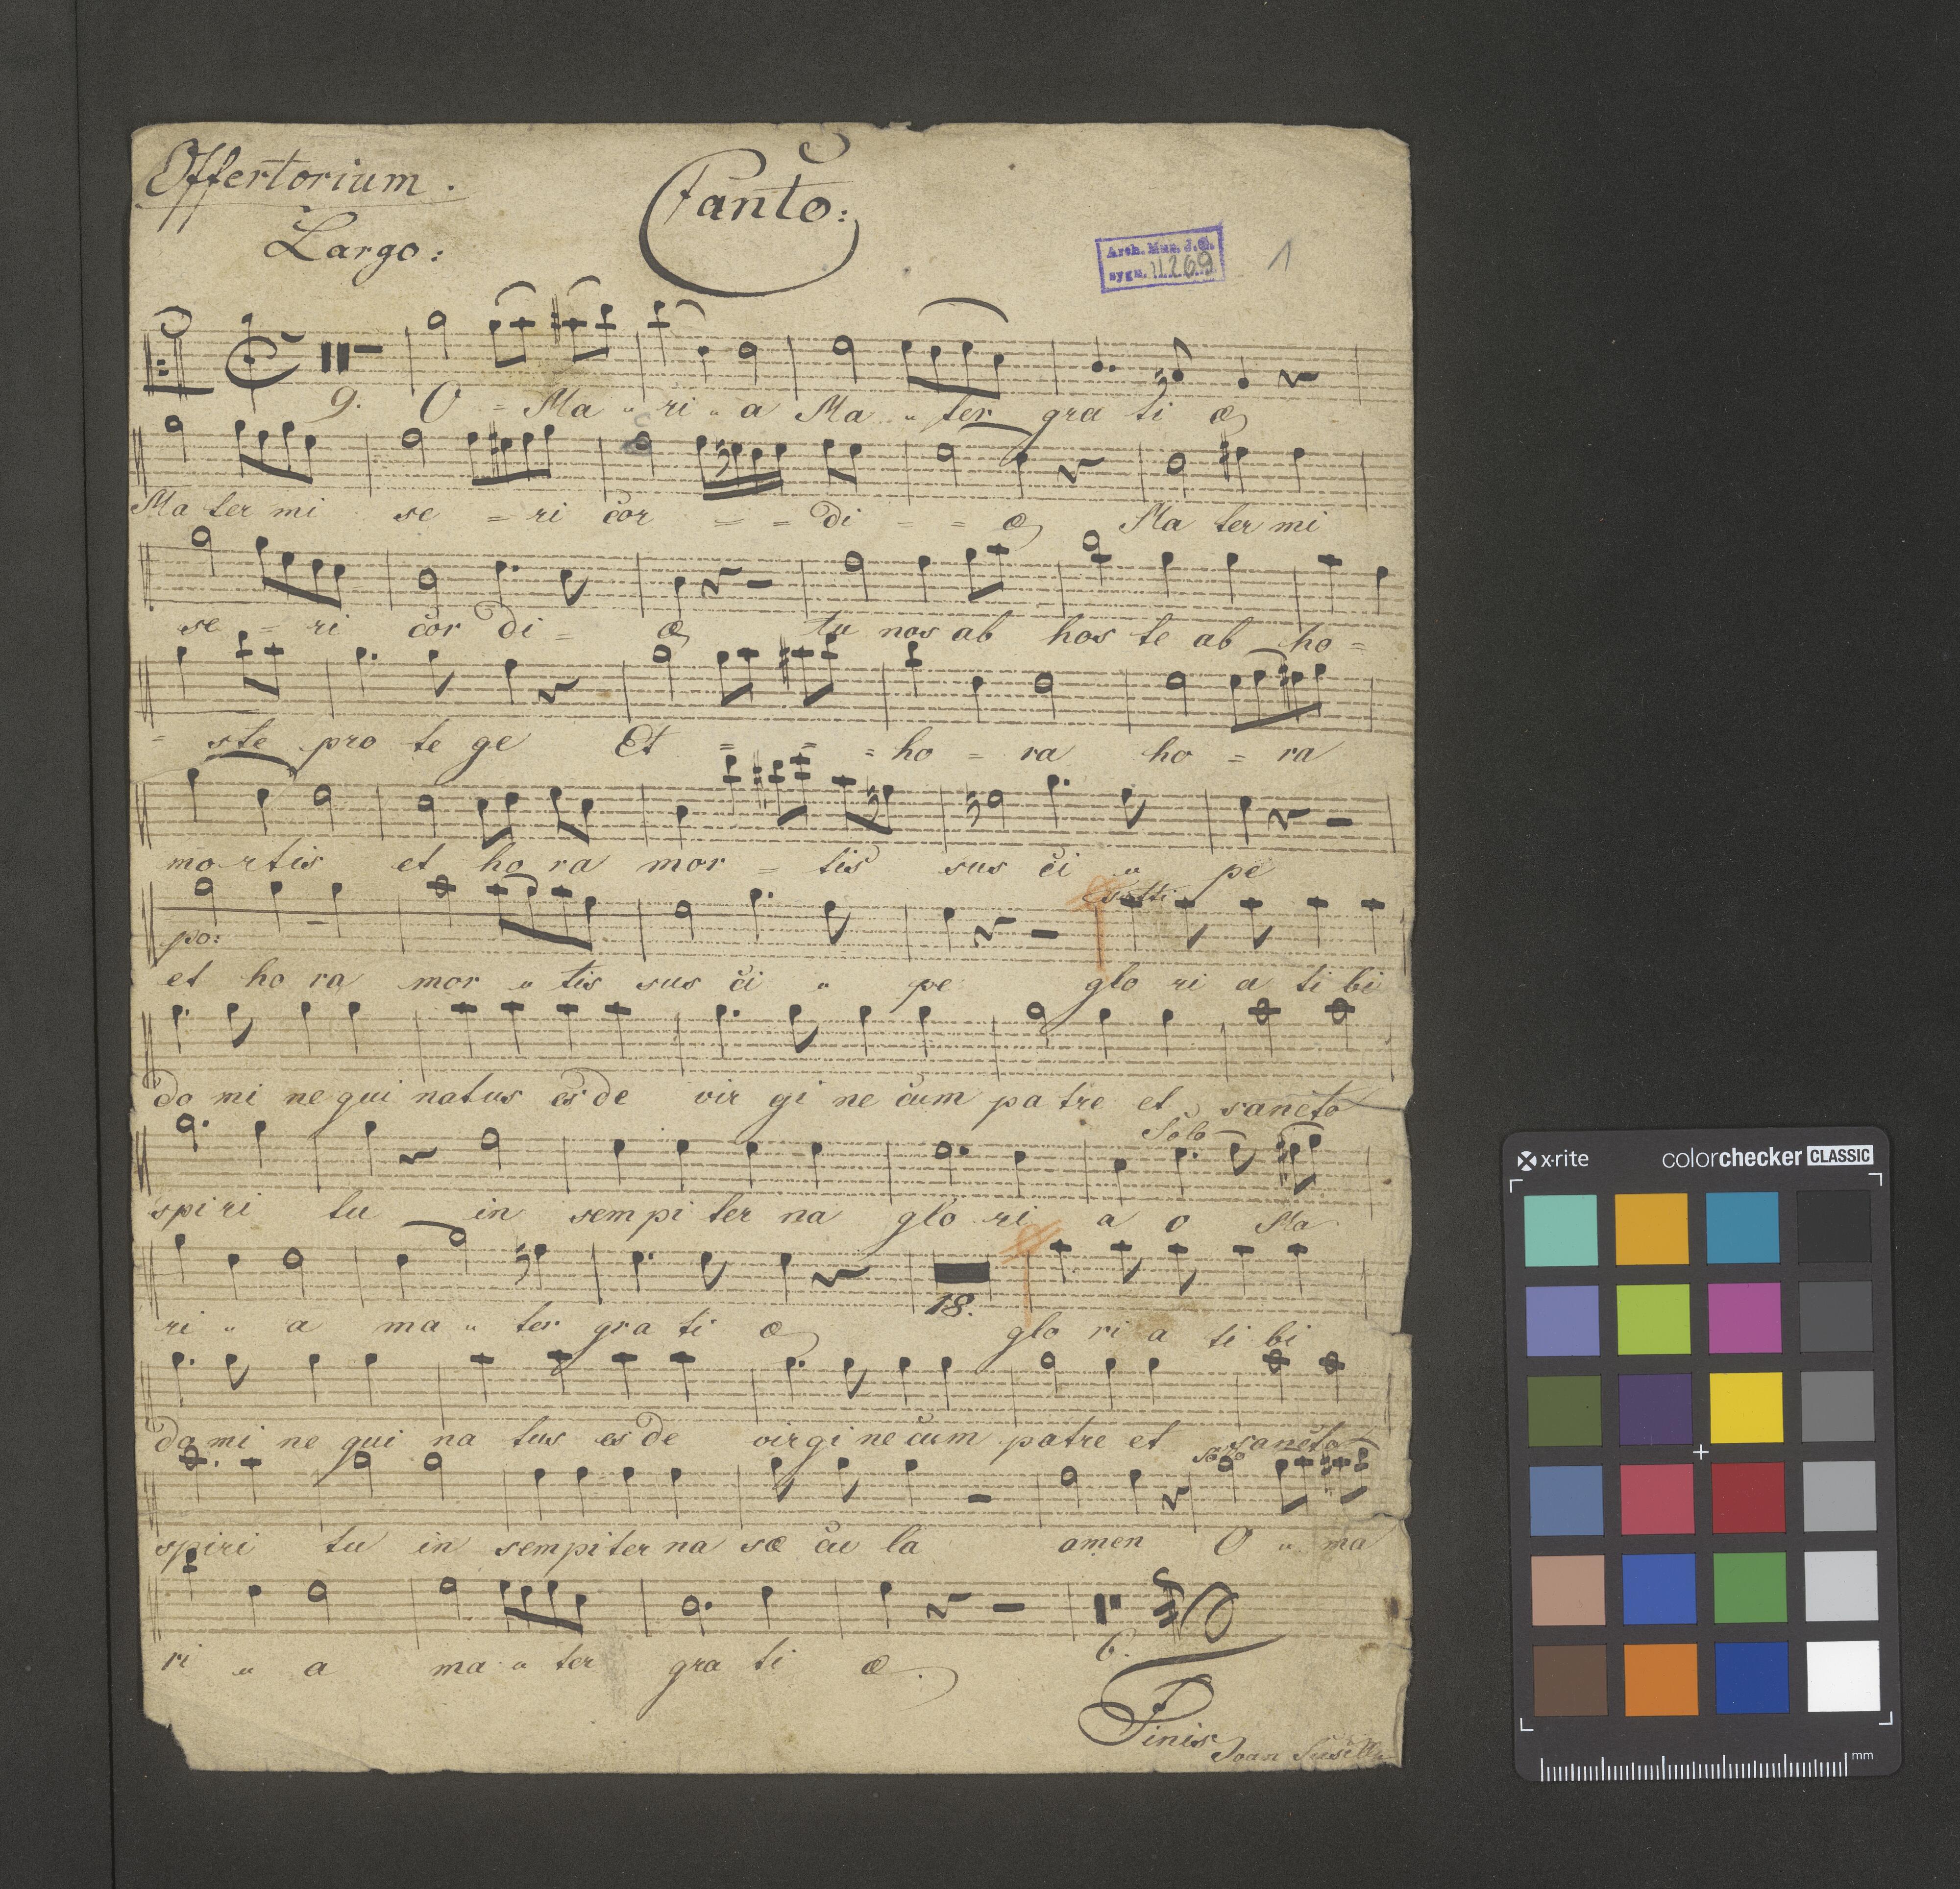 Offertorium.
Canto:
Largo:
Arch. Muz. J.G.
sygn. II 269
1
9. O = Ma " ri " a Ma " " ter gra ti æ
Ma ter mi se = ri cor = = di = = æ Ma ter mi
se = ri cor di = æ tu nos ab hos te ab ho =
= ste pro te ge Et = = = ho = ra ho = ra
mortis et ho ra mor = tis sus ci " pe
tutti
po:
et ho ra mor " tis sus ci " pe glo ri a ti bi
do mi ne qui natus es de vir gi ne cum pa tre et sancto
Solo
spi ri tu in sempi ter na glo ri a o Ma
18.
ri " a ma " ter gra ti æ glo ri a ti bi
do mi ne qui na tus es de virgi ne cum patre et sancto
solo
spiri tu in sempiter na sæ cu la amen O " ma
6.
ri " a ma " ter gra ti æ.
Finis
Joan